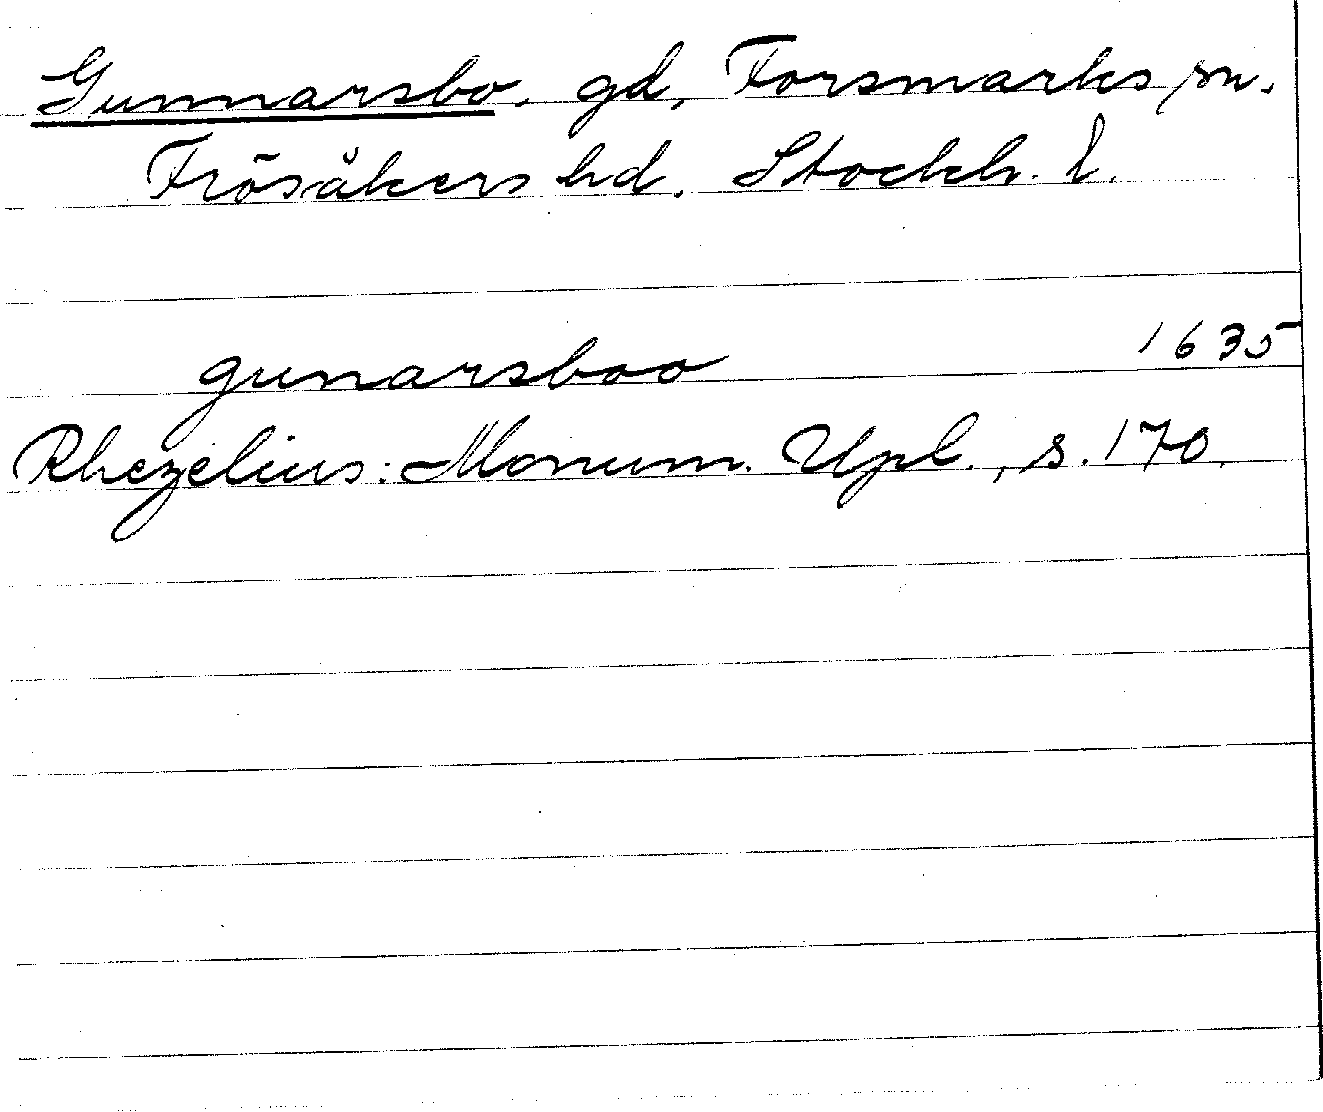 Gunnarsbo. gd, Forsmarks sn.
Frösåkers hd. Stockh. l.
gunarsboo 1635
Rhezelius: Monum. Upl., s. 170.